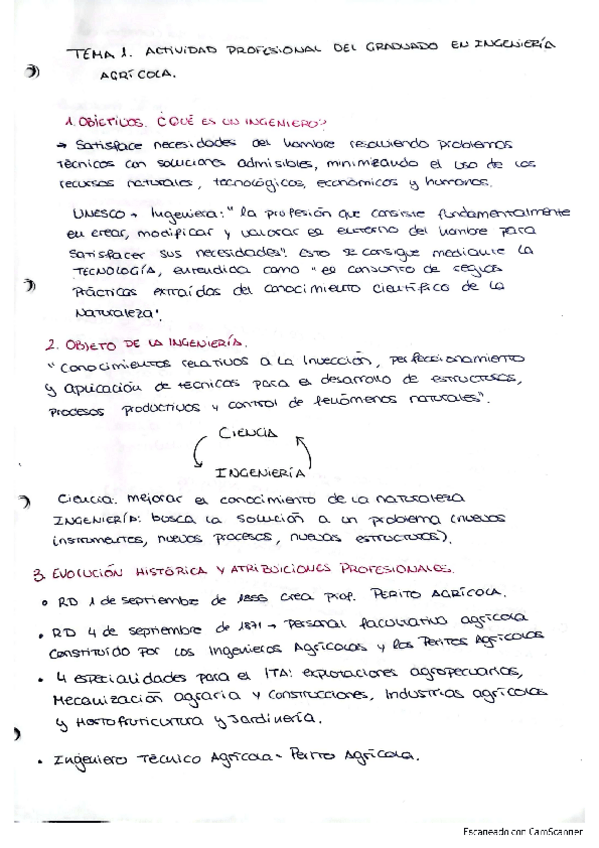 TEMA 1. ACTIVIDAD PROFESIONAL DEL GRADUADO EN INGENIERÍA
AGRÍCOLA.
1. OBJETIVOS. ¿QUÉ ES UN INGENIERO?
→ Satisface necesidades del hombre resolviendo problemas
técnicos con soluciones admisibles, minimizando el uso de los
recursos naturales, tecnológicos, económicos y humanos.
UNESCO → Ingeniera: "la profesión que consiste fundamentalmente
en crear, modificar y valorar el entorno del hombre para
satisfacer sus necesidades". Esto se consigue mediante la
TECNOLOGÍA, entendida como "el conjunto de reglas
prácticas extraídas del conocimiento científico de la
Naturaleza".
2. OBJETO DE LA INGENIERÍA.
"Conocimientos relativos a la invección, perfeccionamiento
y aplicación de técnicas para el desarrollo de estructuras,
procesos productivos y control de fenómenos naturales".
CIENCIA
INGENIERÍA
Ciencia: mejorar el conocimiento de la naturaleza
INGENIERÍA: busca la solución a un problema (nuevos
instrumentos, nuevos procesos, nuevas estructuras).
3. EVOLUCIÓN HISTÓRICA Y ATRIBUCIONES PROFESIONALES.
• RD 1 de septiembre de 1855 crea prof. PERITO AGRÍCOLA.
• RD 4 de septiembre de 1871 → Personal facultativo agrícola
constituido por los Ingenieros Agrícolas y los Peritos Agrícolas
• 4 especialidades para el ITA: explotaciones agropecuarias,
Mecanización agraria y Construcciones, Industrias agrícolas
y Hortofruticultura y Jardinería.
• Ingeniero Técnico Agrícola = Perito Agrícola.
Escaneado con CamScanner